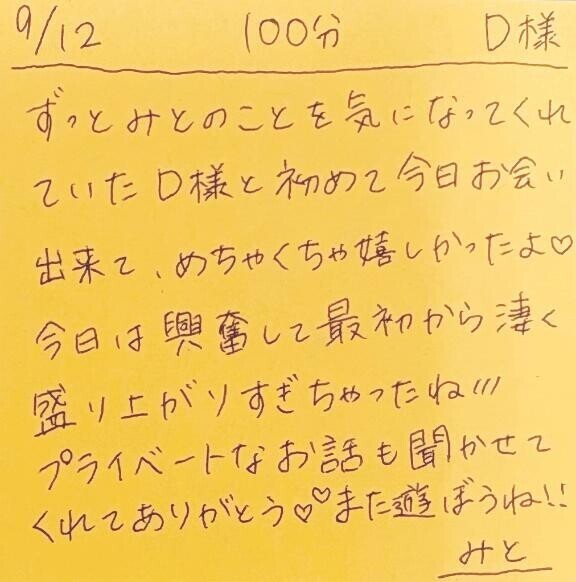 9/12 100分 D様
ずっとみとのことを気になってくれ
ていたD様と初めて今日お会い
出来て、めちゃくちゃ嬉しかったよ♡
今日は興奮して最初から凄く
盛り上がりすぎちゃったね///
プライベートなお話も聞かせて
くれてありがとう♡♡また遊ぼうね!!
みと